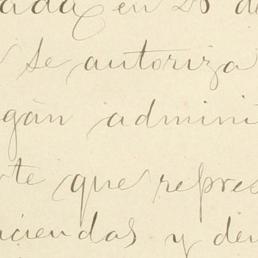 ada, en 28 de
se autoriza
gan admini
te que repres
ciendas y de